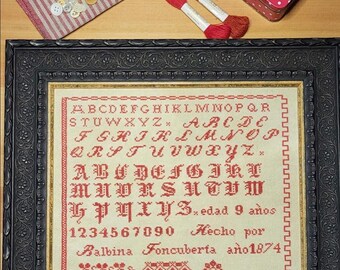 ABCDEFGHIJKLMNOPQR
STUVWXYZ × ABCDE
FGHIJKLMNOP
QRSTUVWXYZ ×
ABCDEFGHI
KLMNOPQRSTUVW
XYZ × edad 9 años
1234567890 Hecho por
Balbina Foncuberta año 1874